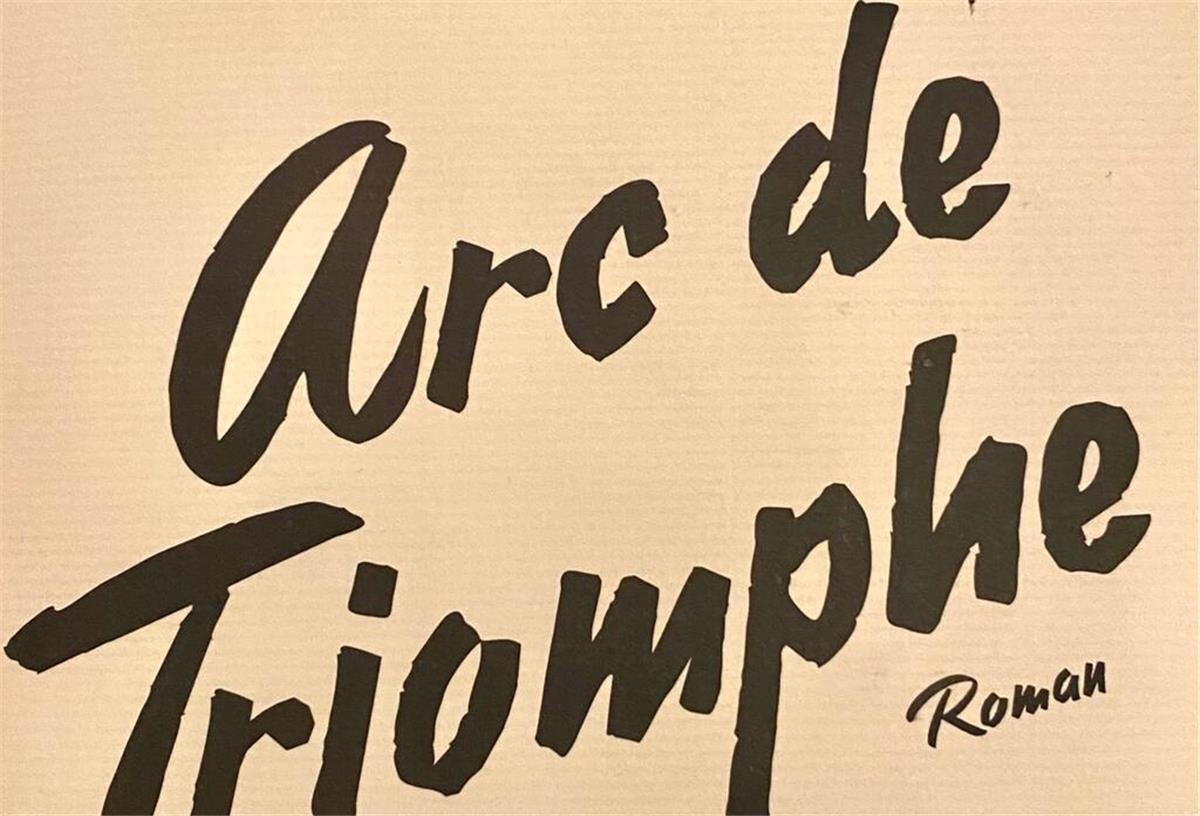 Arc de
Triomphe
Roman